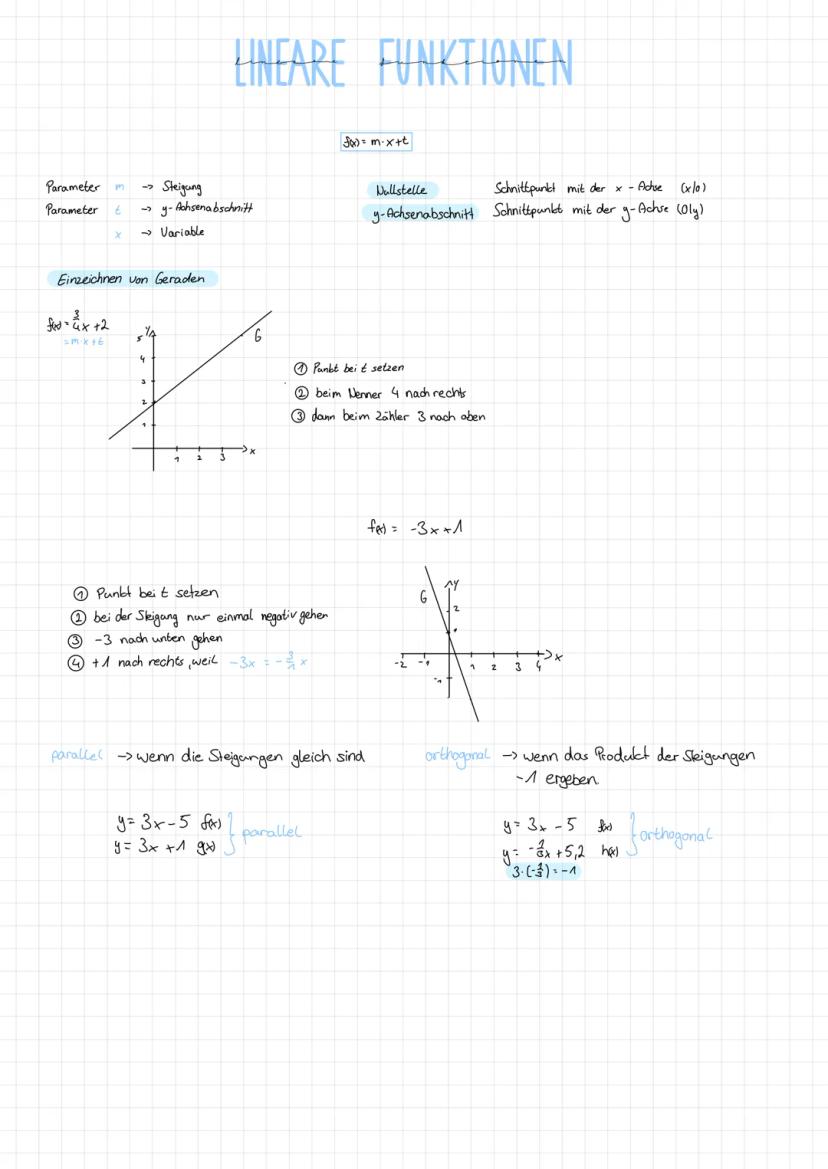 LINEARE FUNKTIONEN
f(x) = m·x+t
Parameter m -> Steigung
Parameter t -> y-Achsenabschnitt
x -> Variable
Nullstelle Schnittpunkt mit der x-Achse (x|0)
y-Achsenabschnitt Schnittpunkt mit der y-Achse (0|y)
Einzeichnen von Geraden
f(x) = 3/4x +2
= m·x+t
y
5
4
3
2
1
G
1 2 3 x
① Punkt bei t setzen
② beim Nenner 4 nach rechts
③ dann beim Zähler 3 nach oben
f(x) = -3x+1
① Punkt bei t setzen
② bei der Steigung nur einmal negativ gehen
③ -3 nach unten gehen
④ +1 nach rechts, weil -3x = -3/1 x
y
G
2
-2 -1 1 2 3 4 x
-1
parallel -> wenn die Steigungen gleich sind
y = 3x-5 f(x)
y = 3x +1 g(x)
parallel
orthogonal -> wenn das Produkt der Steigungen
-1 ergeben.
y = 3x -5 f(x)
y = -1/3x +5,2 h(x)
orthogonal
3·(-1/3) = -1